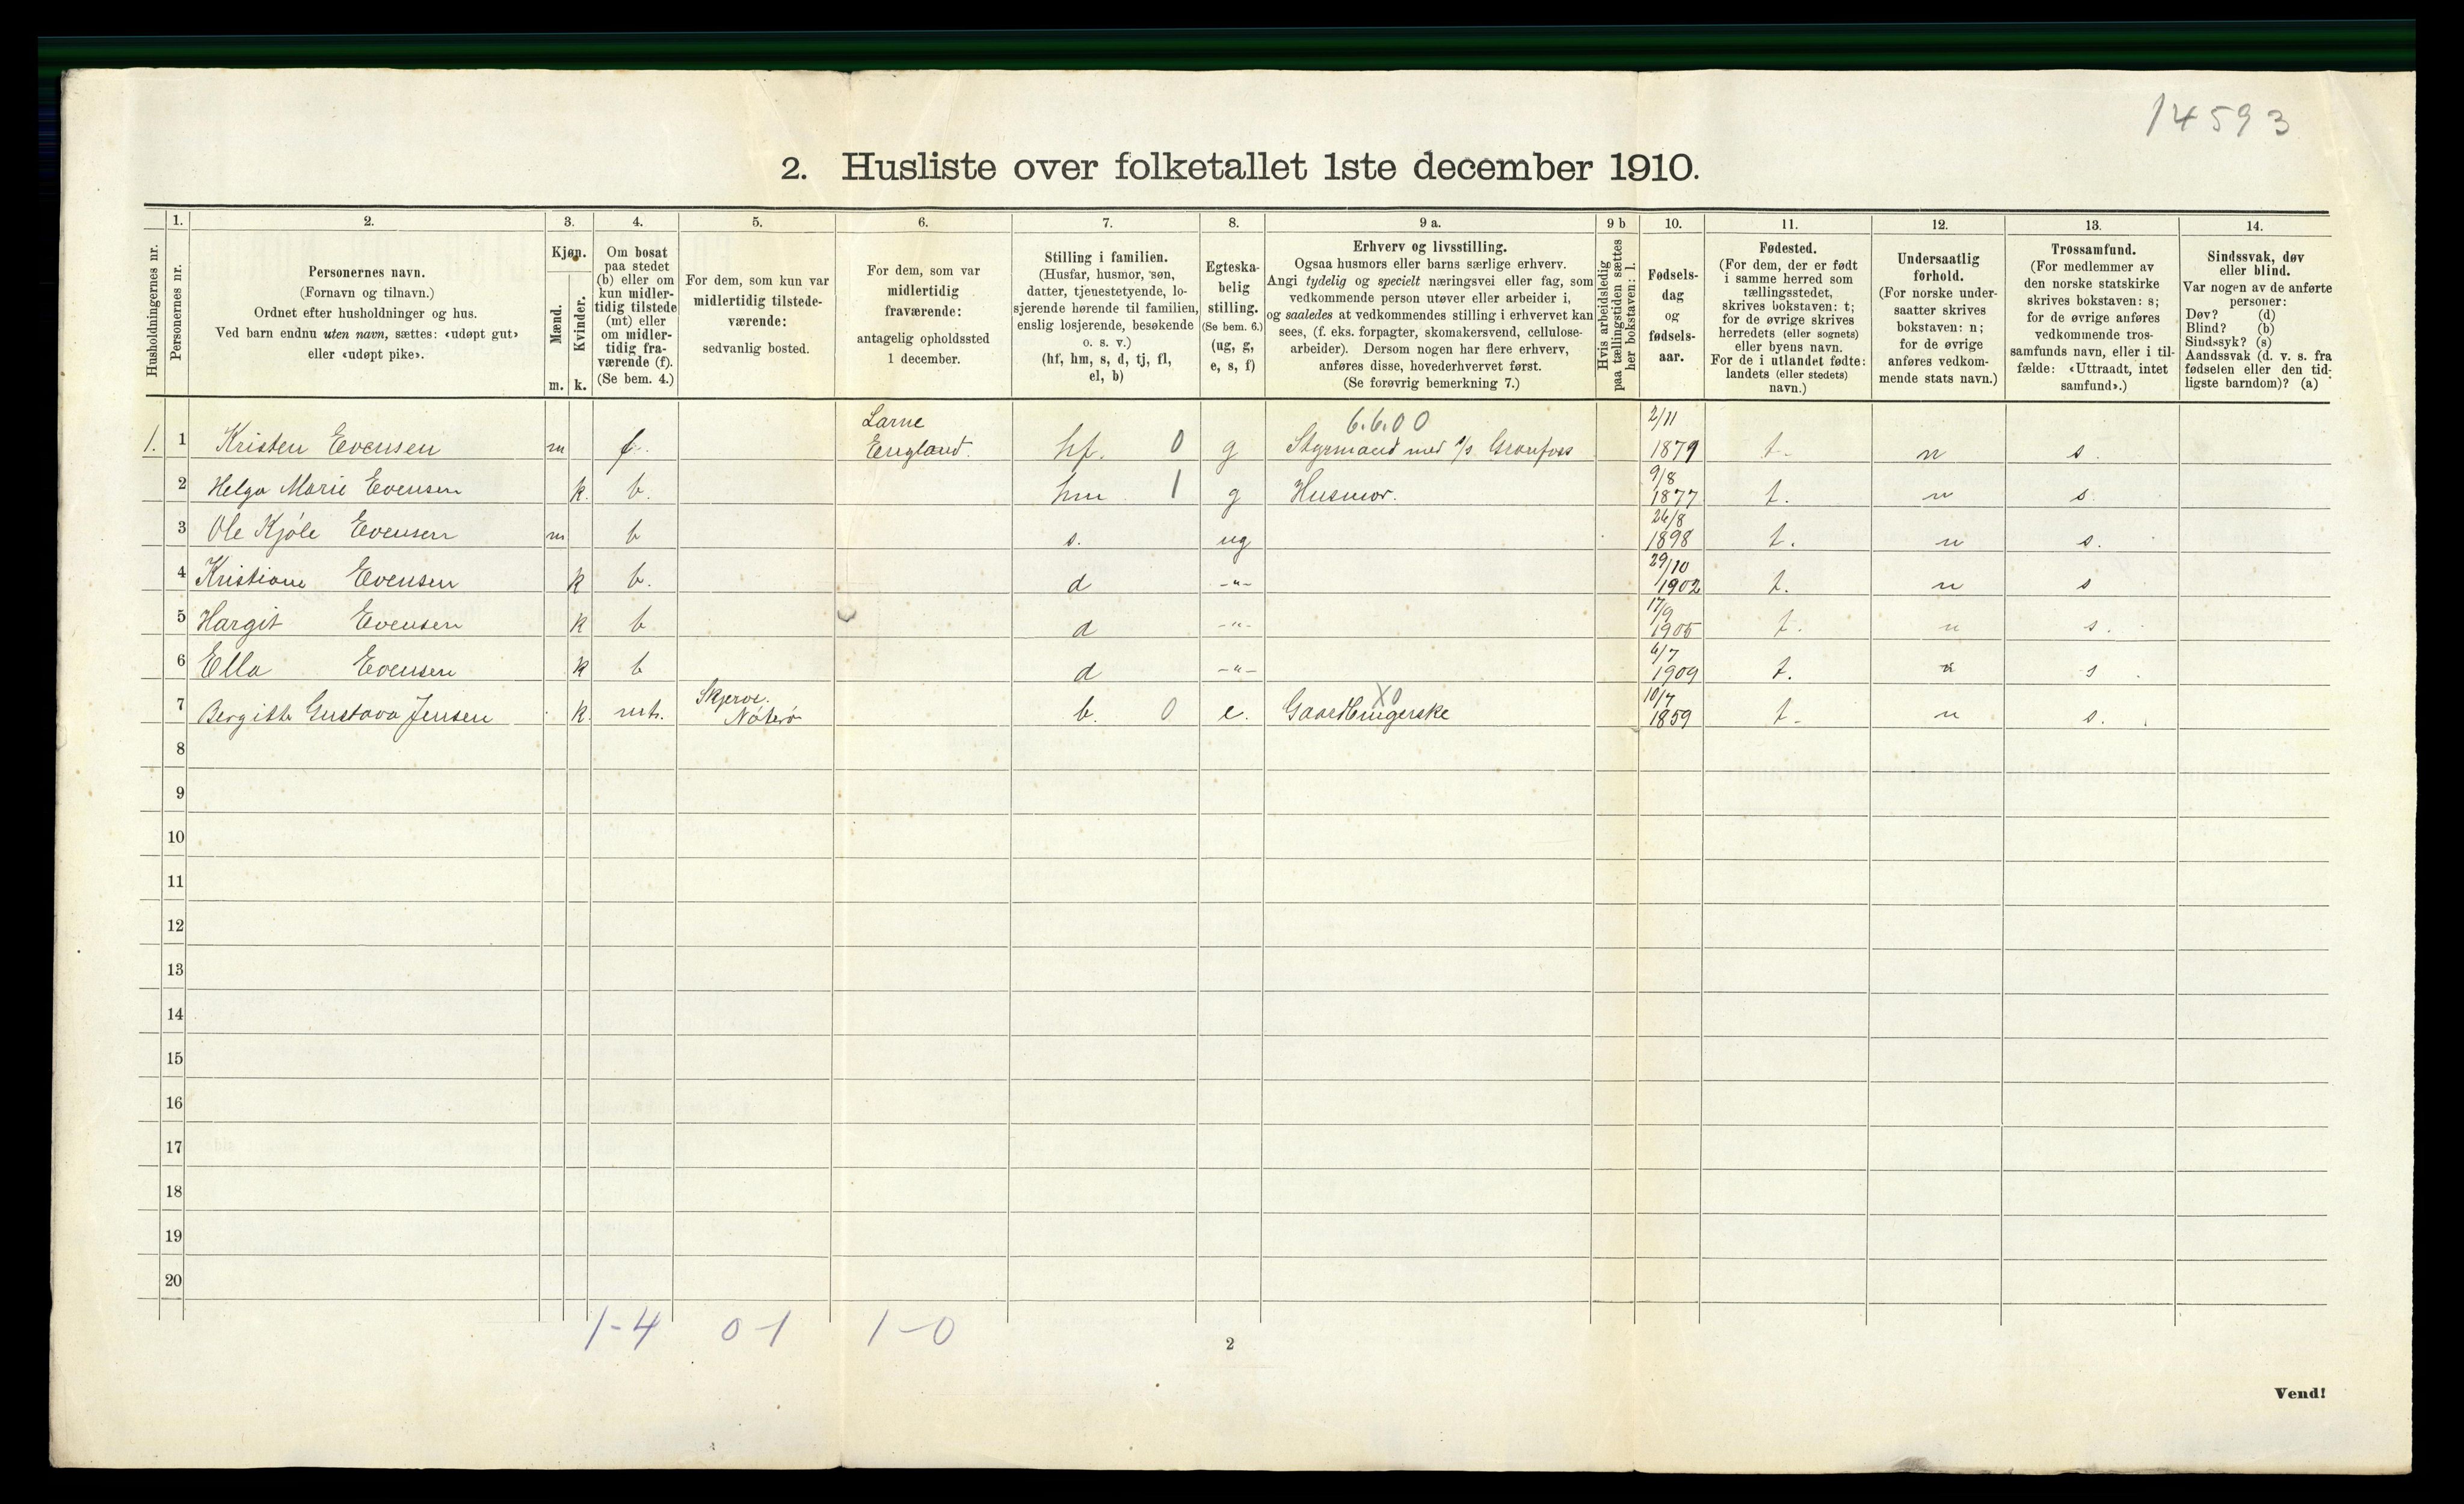 14593
2. Husliste over folketallet 1ste december 1910.
Husholdningernes nr.
1.
Personernes nr.
2.
Personernes navn.
(Fornavn og tilnavn.)
Ordnet efter husholdninger og hus.
Ved barn endnu uten navn, sættes: «udøpt gut»
eller «udøpt pike».
3.
Kjøn.
Mænd.
Kvinder.
m. k.
4.
Om bosat
paa stedet
(b) eller om
kun midler-
tidig tilstede
(mt) eller
om midler-
tidig fra-
værende (f).
(Se bem. 4.)
5.
For dem, som kun var
midlertidig tilstede-
værende:
sedvanlig bosted.
6.
For dem, som var
midlertidig
fraværende:
antagelig opholdssted
1 december.
7.
Stilling i familien.
(Husfar, husmor, søn,
datter, tjenestetyende, lo-
sjerende hørende til familien,
enslig losjerende, besøkende
o. s. v.)
(hf, hm, s, d, tj, fl,
el, b)
8.
Egteska-
belig
stilling.
(Se bem. 6.)
(ug, g,
e, s, f)
9 a.
Erhverv og livsstilling.
Ogsaa husmors eller barns særlige erhverv.
Angi tydelig og specielt næringsvei eller fag, som
vedkommende person utøver eller arbeider i,
og saaledes at vedkommendes stilling i erhvervet kan
sees, (f. eks. forpagter, skomakersvend, cellulose-
arbeider). Dersom nogen har flere erhverv,
anføres disse, hovederhvervet først.
(Se forøvrig bemerkning 7.)
9 b
Hvis arbeidsledig
paa tællingstiden sættes
her bokstaven: l.
10.
Fødsels-
dag
og
fødsels-
aar.
11.
Fødested.
(For dem, der er født
i samme herred som
tællingsstedet,
skrives bokstaven: t;
for de øvrige skrives
herredets (eller sognets)
eller byens navn.
For de i utlandet fødte:
landets (eller stedets)
navn.)
12.
Undersaatlig
forhold.
(For norske under-
saatter skrives
bokstaven: n;
for de øvrige
anføres vedkom-
mende stats navn.)
13.
Trossamfund.
(For medlemmer av
den norske statskirke
skrives bokstaven: s;
for de øvrige anføres
vedkommende tros-
samfunds navn, eller i til-
fælde: «Uttraadt, intet
samfund».)
14.
Sindssvak, døv
eller blind.
Var nogen av de anførte
personer:
Døv? (d)
Blind? (b)
Sindssyk? (s)
Aandssvak (d. v. s. fra
fødselen eller den tid-
ligste barndom)? (a)
Larne 6.6.00 2/11
1. 1 Kristen Evensen m f. England. hf. 0 g Styrmand med s/s Granfoss 1879 t. n s.
9/8
2 Helga Marie Evensen k. b. hm 1 g Husmor. 1877 t. n s
26/8
3 Ole Kjöle Evensen m b s. ug 1898 t. n s.
29/10
4 Kristiane Evensen k b. d -"- 1902 t. n s
17/9
5 Hargit Evensen k b d -"- 1905 t. n s.
6/7
6 Ella Evensen k b d -"- 1909 t. n s
Skjerve. X0 10/7
7 Bergitte Gustava Jensen k. mt. Nøterø b. 0 e. Gaardbrugerske 1859 t. n s.
8
9
10
11
12
13
14
15
16
17
18
19
20
1-4 0-1 1-0
2
Vend!